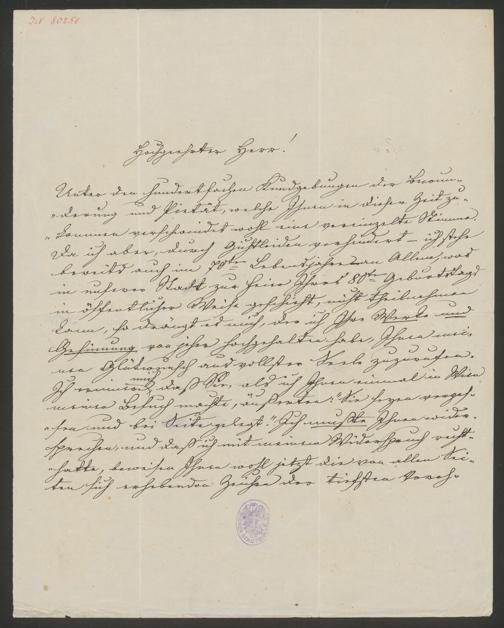 IN 80250
Hochgeehrter Herr!
Unter den hundertfachen Kundgebungen der Bewun-
derung und Pietät, welche Ihnen in dieser Zeit zu-
kommen verschwindet wohl eine vereinzelte Stimme.
Da ich aber, durch Gichtleiden verhindert – ich stehe
bereits auch im 70ten Lebensjahre – an Allem, was
in unserer Stadt zur Feier Ihres 80ten Geburtstags
in öffentlicher Weise geschieht, nicht theilnehmen
kann, so drängt es mich, der ich Ihre Werke und
Gesinnung von jeher hochgehalten habe, Ihnen mei-
nen Glückwunsch aus vollster Seele zuzurufen.
Ich erinnere mich, daß Sie, als ich Ihnen einmal in Wien
meinen Besuch machte, äußerten: "Sie seyen verges-
sen und bei Seite gelegt." Ich mußte Ihnen wider-
sprechen, und daß ich mit meinem Widerspruch recht
hatte, beweisen Ihnen wohl jetzt die von allen Sei-
ten sich erhebenden Zeichen der tiefsten Vereh-